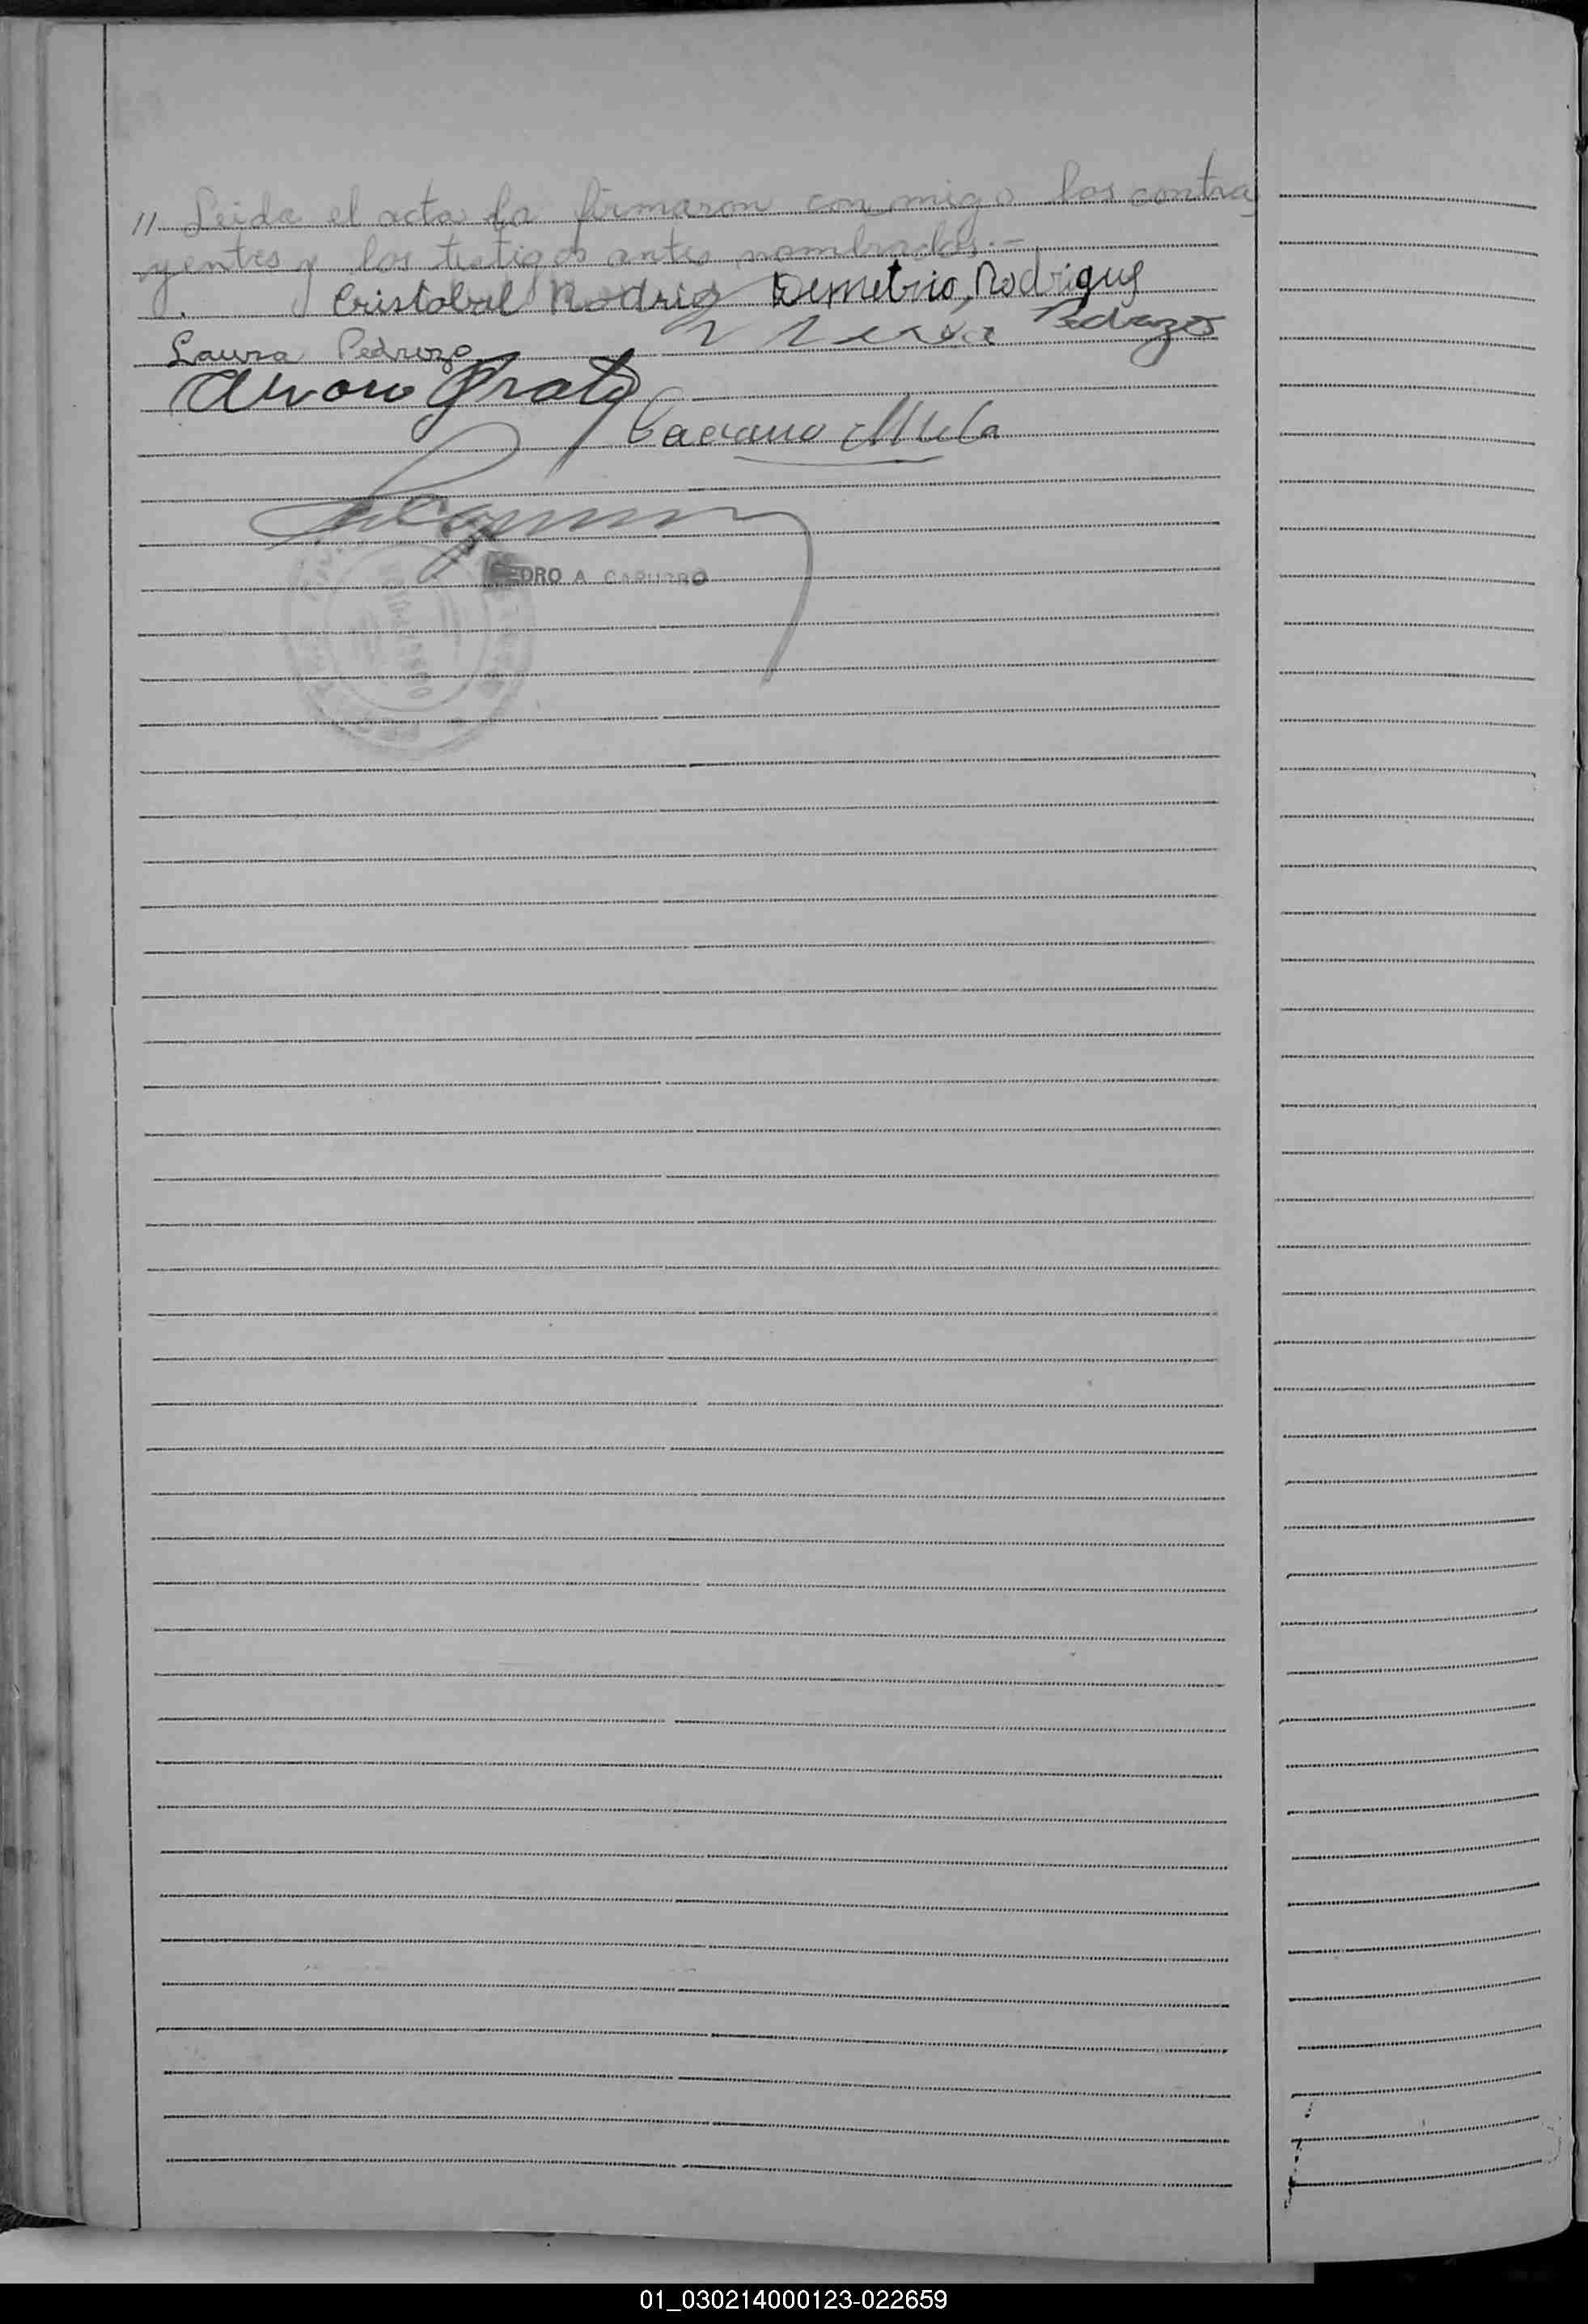 11 Leida el acta la firmaron conmigo los contra
yentes y los testigos antes nombrados.-
Cristobal Rodrig Demetrio Rodrigue
Laura Pedrozo Pedrozo
Alvaro
Mela
PEDRO A CAPURRO
01_030214000123-022659